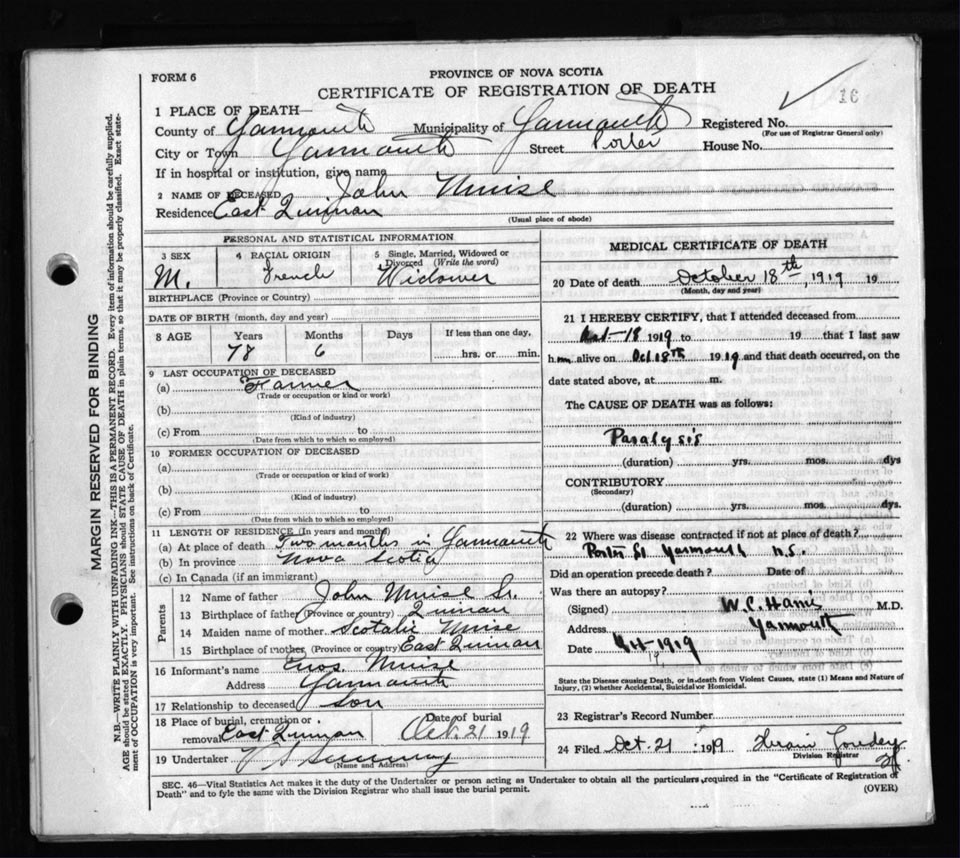 FORM 6
PROVINCE OF NOVA SCOTIA
CERTIFICATE OF REGISTRATION OF DEATH
16
1 PLACE OF DEATH—
County of Yarmouth Municipality of Yarmouth Registered No.
(For use of Registrar General only)
City or Town Yarmouth Street Porter House No.
If in hospital or institution, give name
2 NAME OF DECEASED John Muise
Residence East Quinan
(Usual place of abode)
PERSONAL AND STATISTICAL INFORMATION
3 SEX
M.
4 RACIAL ORIGIN
French
5 Single, Married, Widowed or
Divorced (Write the word)
Widower
BIRTHPLACE (Province or Country)
DATE OF BIRTH (month, day and year)
8 AGE Years Months Days If less than one day,
78 6 hrs. or min.
9 LAST OCCUPATION OF DECEASED
(a) Farmer
(Trade or occupation or kind or work)
(b)
(Kind of industry)
(c) From to
(Date from which to which so employed)
10 FORMER OCCUPATION OF DECEASED
(a)
(Trade or occupation or kind or work)
(b)
(Kind of industry)
(c) From to
(Date from which to which so employed)
11 LENGTH OF RESIDENCE (In years and months)
(a) At place of death Two months in Yarmouth
(b) In province Nova Scotia
(c) In Canada (if an immigrant)
Parents
12 Name of father John Muise Sr.
13 Birthplace of father (Province or country) Quinan
14 Maiden name of mother Muise
15 Birthplace of mother (Province or country) East Quinan
16 Informant's name Enos Muise
Address Yarmouth
17 Relationship to deceased son
18 Place of burial, cremation or
removal East Quinan
Date of burial
Oct. 21 1919
19 Undertaker
(Name and Address)
MEDICAL CERTIFICATE OF DEATH
20 Date of death October 18th, 1919 19
(Month, day and year)
21 I HEREBY CERTIFY, that I attended deceased from
Oct-18 1919 to 19 that I last saw
him alive on Oct 18th 1919 and that death occurred, on the
date stated above, at m.
The CAUSE OF DEATH was as follows:
Paralysis
(duration) yrs. mos. dys
CONTRIBUTORY
(Secondary)
(duration) yrs. mos. dys.
22 Where was disease contracted if not at place of death?
Porter St Yarmouth N.S.
Did an operation precede death? Date of
Was there an autopsy?
(Signed) W.C. Harris M.D.
Address Yarmouth
Date 1919
State the Disease causing Death, or in death from Violent Causes, state (1) Means and Nature of
Injury, (2) whether Accidental, Suicidal or Homicidal.
23 Registrar's Record Number
24 Filed Oct. 21 1919
Division Registrar
SEC. 46—Vital Statistics Act makes it the duty of the Undertaker or person acting as Undertaker to obtain all the particulars required in the "Certificate of Registration of
Death" and to fyle the same with the Division Registrar who shall issue the burial permit.
(OVER)
MARGIN RESERVED FOR BINDING
N.B.—WRITE PLAINLY WITH UNFADING INK—THIS IS A PERMANENT RECORD. Every item of information should be carefully supplied.
AGE should be stated EXACTLY. PHYSICIANS should STATE CAUSE OF DEATH in plain terms, so that it may be properly classified. Exact state-
ment of OCCUPATION is very important. See instructions on back of Certificate.